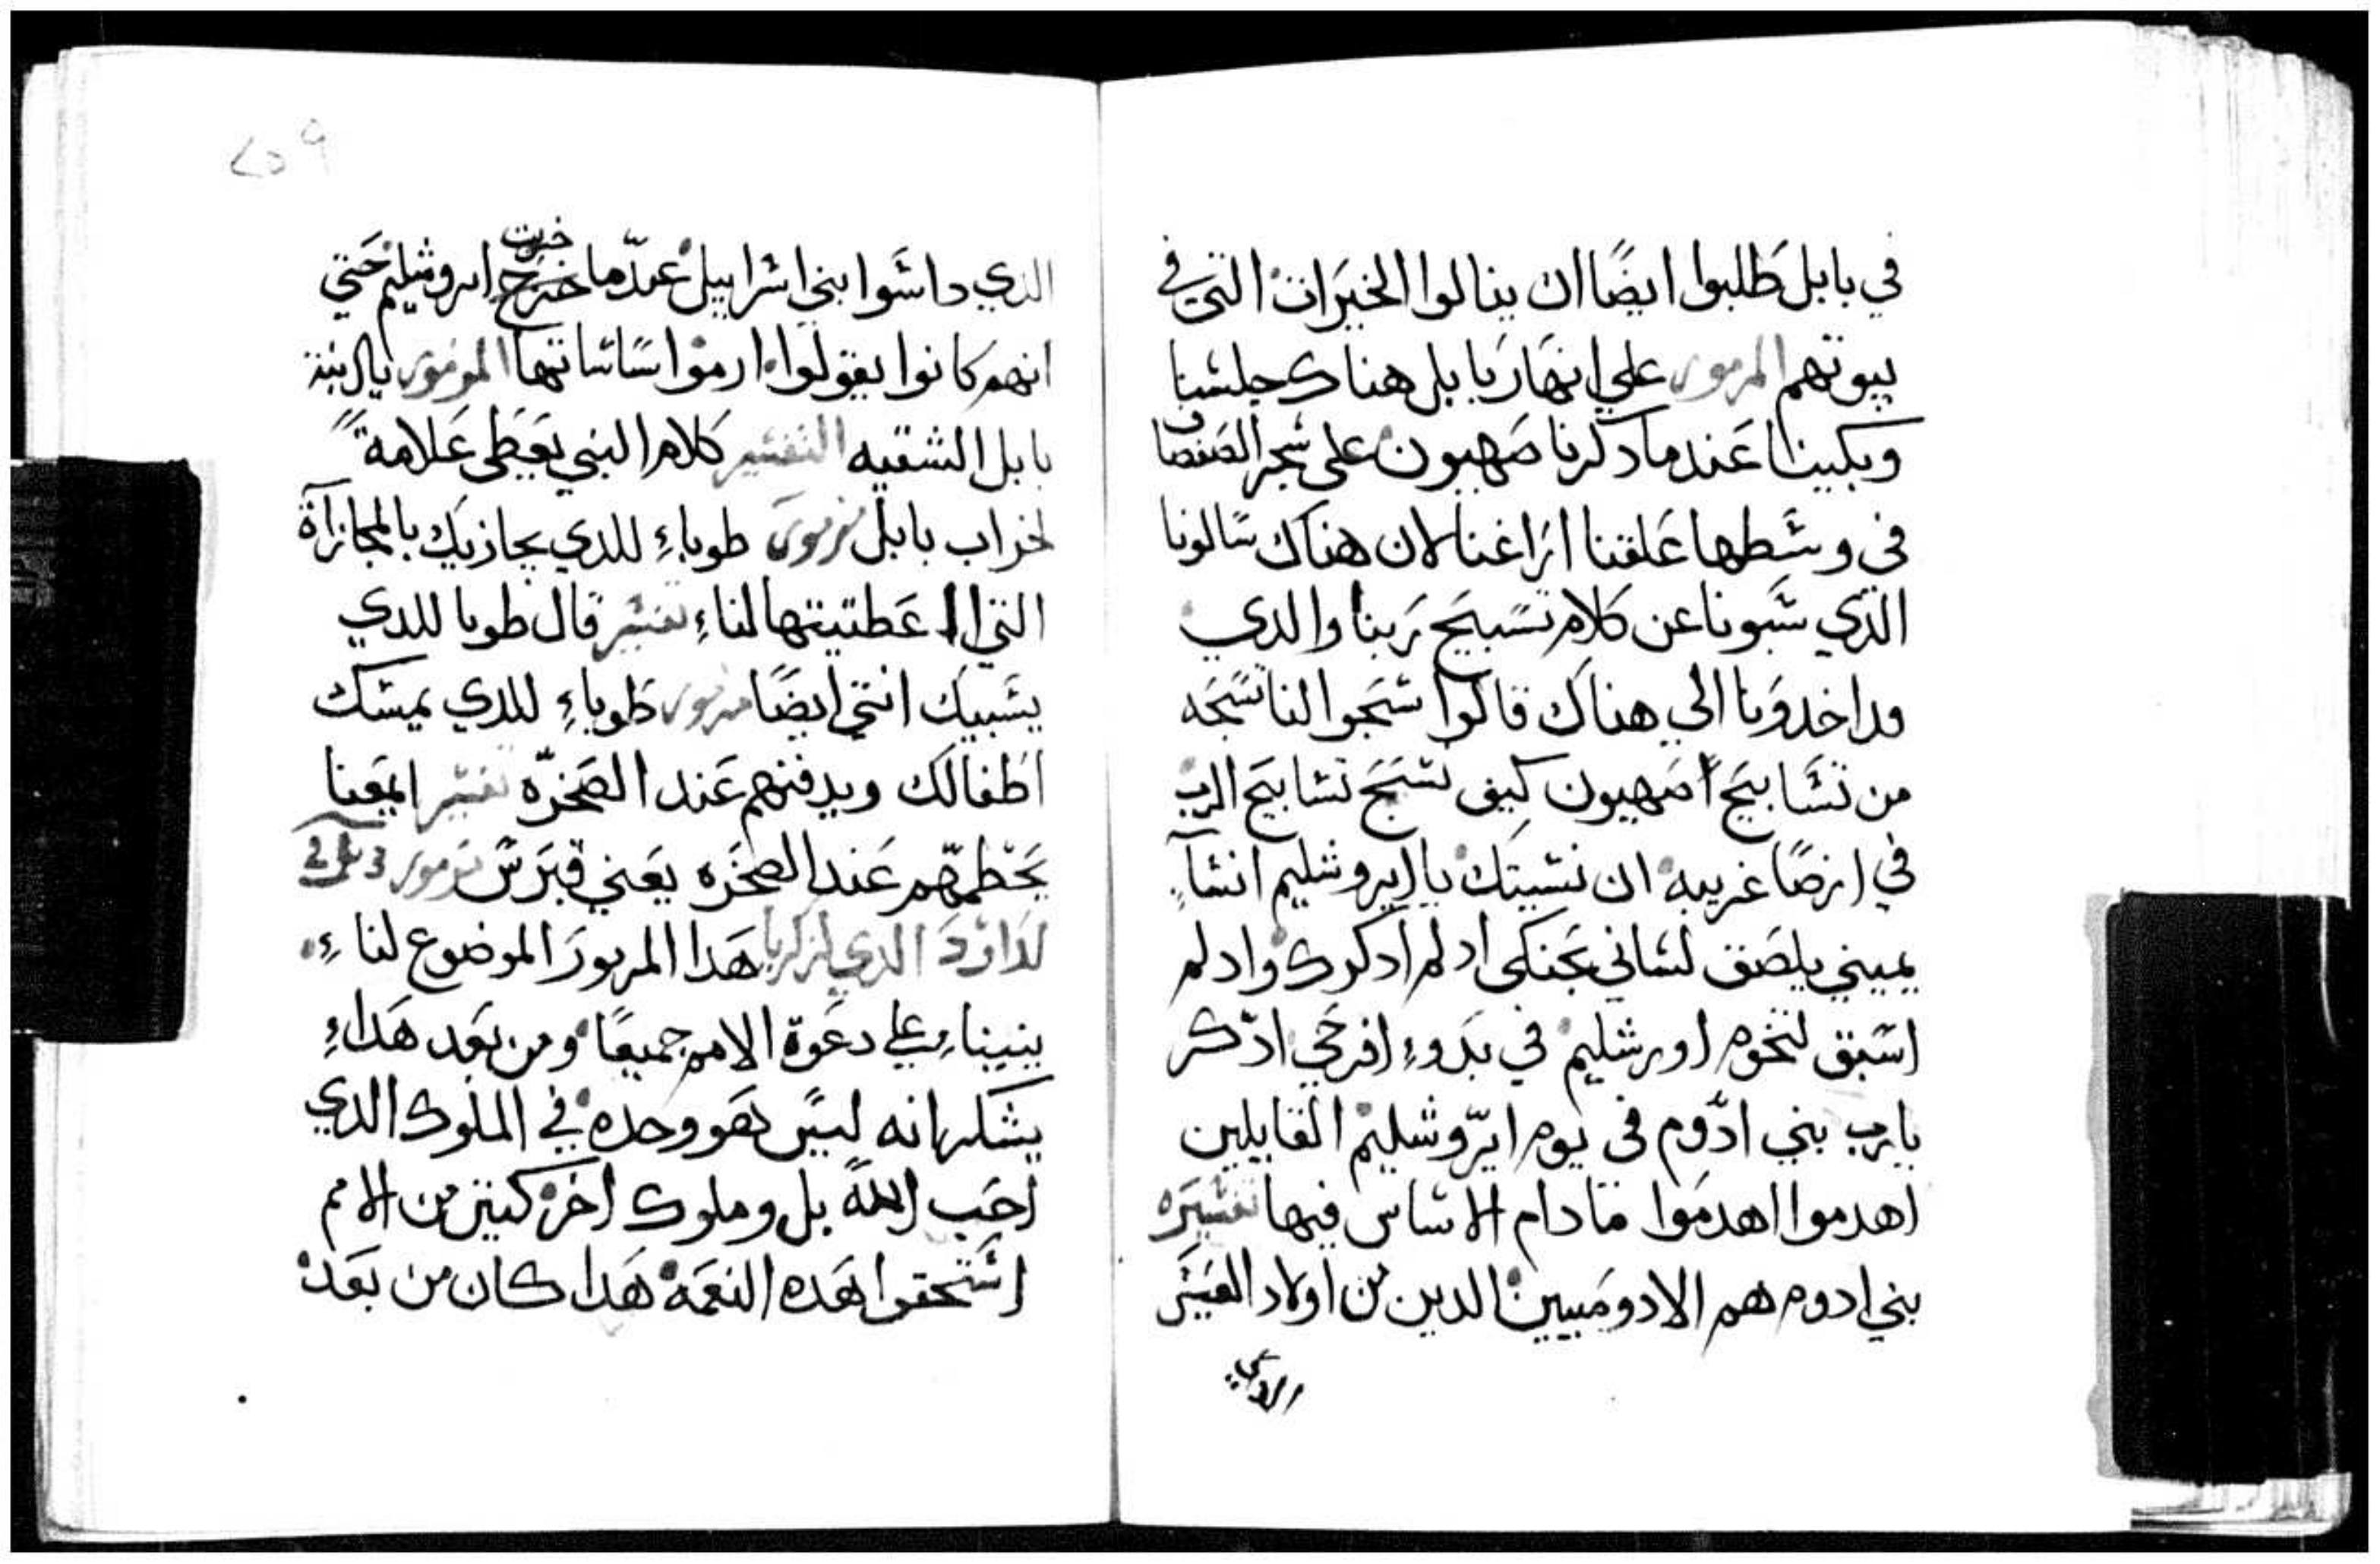 في بابل طلبوا ايضًا ان ينالوا الخيرات التي في
بيوتهم المزمور علي انهار بابل هناك جلسنا
وبكينا عند ما دكرنا صهيون على شجر الصفصاف
في وسطها علقنا اراغننا لان هناك سالونا
الذي سبونا عن كلام تسبيح ربنا والدي
قد اخدونا الي هناك قالوا سبحوا لنا تسبحه
من تسابيح صهيون كيف نسبح تسابيح الرب
في ارضًا غريبه ان نسيتك يا ايروشليم انسا
يميني يلصق لساني بحنكي اد لم ادكرك واد لم
اسبق لتخوم اورشليم في بدو افرحي ادكر
يارب بني ادوم في يوم ايروشليم القايلين
اهدموا اهدموا مادام الاساس فيها تفسيره
بني ادوم هم الادوميين الدين من اولاد العيس
الدي
٢٥٩
الدي داسوا بني اسراييل عندما خربت ايروشليم حتي
انهم كانوا يقولوا ارموا ساساتها المزمور يا ابنة
بابل الشقيه التفسير كلام النبي يعطي علامةً
لخراب بابل مزمور طوباء للدي يجازيك بالمجازاة
التي عطتيتها لناء تفسير قال طوبا للدي
يسبيك انتي ايضًا مزمور طوباء للدي يمسك
اطفالك ويدفنهم عند الصخره تفسير ايمعنا
يحطمهم عند الصخره يعني قبرس مزمور
لداود الدي لزكريا هدا المزمور الموضوع لناء
ينبيناء علي دعوة الامم جميعًا ومن بعد هداء
يشكر انه ليس هو وحده في الملوك الدي
احب الله بل وملوك اخر كتير من الامم
استحقوا هده النعمه هدا كان من بعد